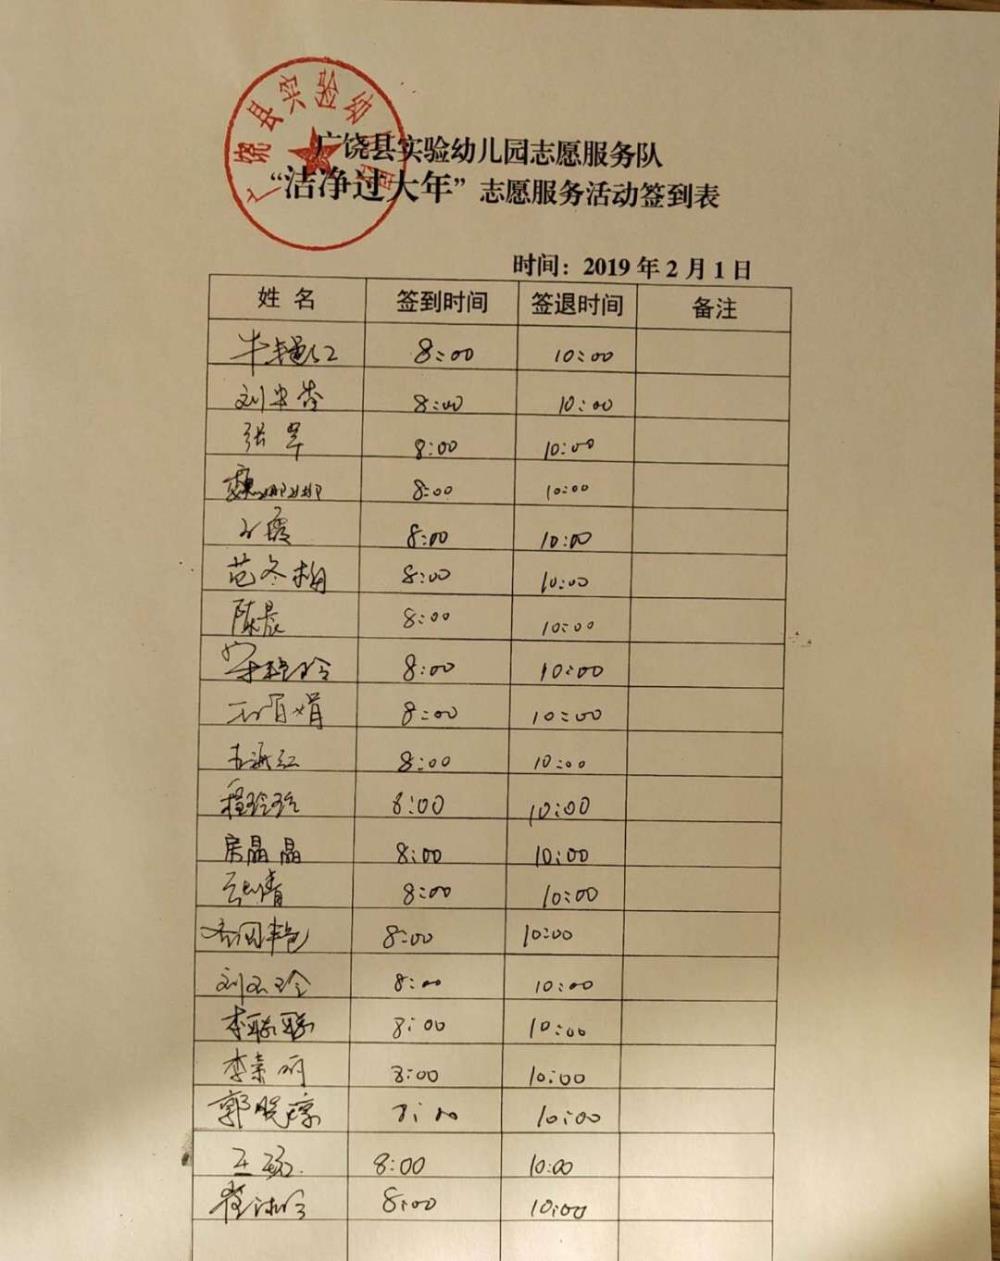 广饶县实验幼儿园
广饶县实验幼儿园志愿服务队
“洁净过大年”志愿服务活动签到表
时间：2019年2月1日
姓名 签到时间 签退时间 备注
8:00 10:00
8:00 10:00
张军 8:00 10:00
魏娜娜 8:00 10:00
8:00 10:00
范冬梅 8:00 10:00
陈晨 8:00 10:00
8:00 10:00
8:00 10:00
8:00 10:00
程玲玲 8:00 10:00
房晶晶 8:00 10:00
8:00 10:00
8:00 10:00
刘玉玲 8:00 10:00
李聪聪 8:00 10:00
李素丽 8:00 10:00
郭晓琼 10:00
8:00 10:00
8:00 10:00